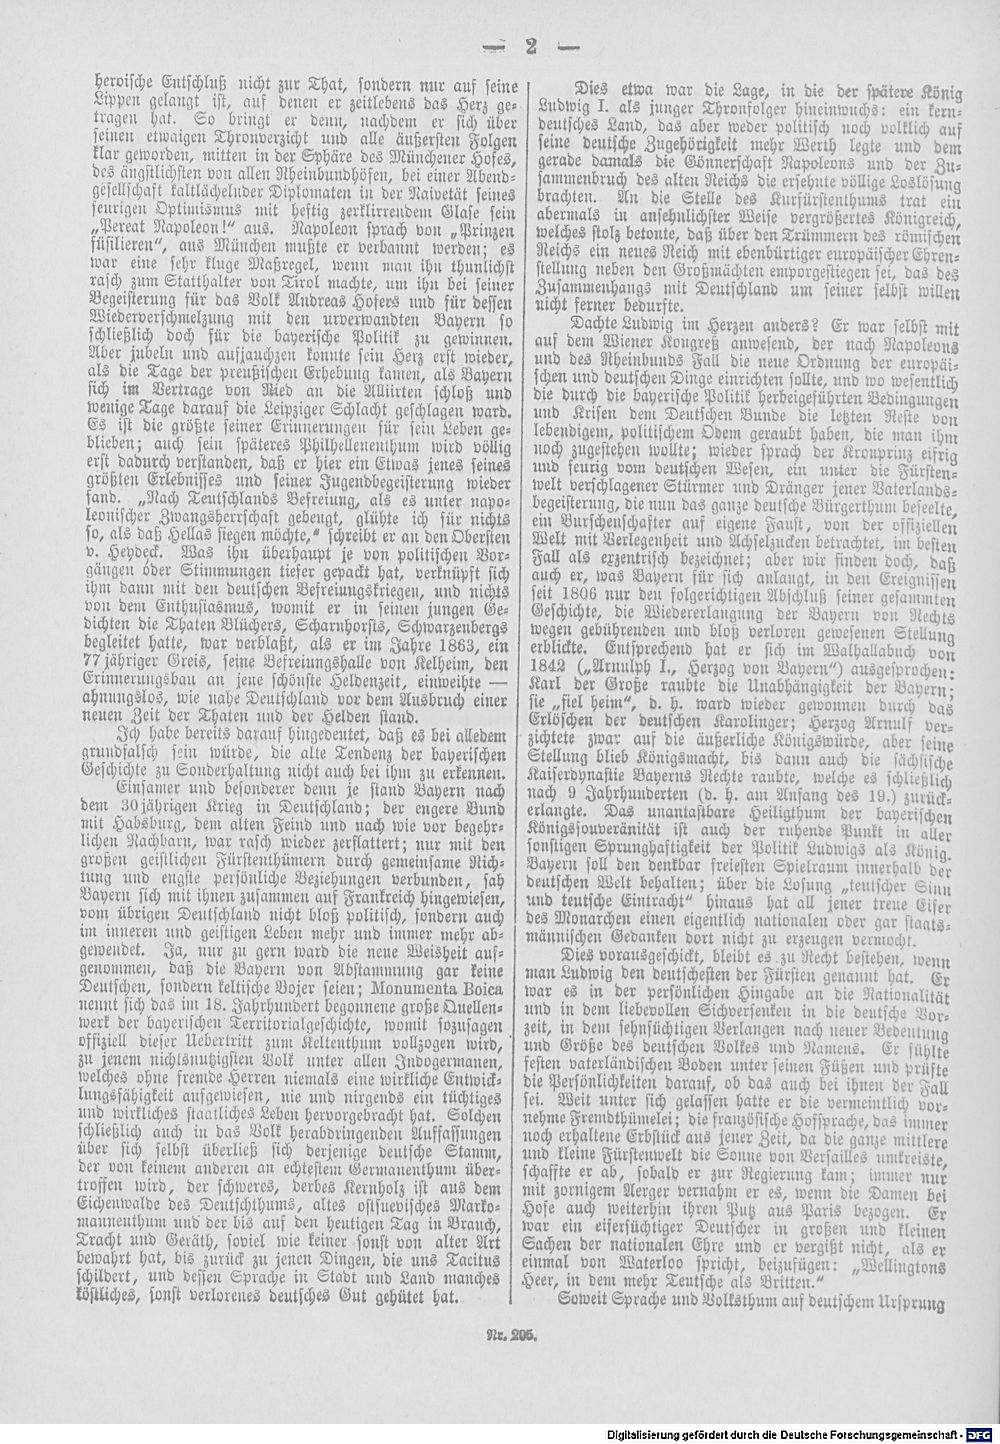 — 2 —
heroische Entschluß nicht zur That, sondern nur auf seine
Lippen gelangt ist, auf denen er zeitlebens das Herz ge-
tragen hat. So bringt er denn, nachdem er sich über
seinen etwaigen Thronverzicht und alle äußersten Folgen
klar geworden, mitten in der Sphäre des Münchener Hofes,
des ängstlichsten von allen Rheinbundhöfen, bei einer Abend-
gesellschaft kaltlächelnder Diplomaten in der Naivetät seines
feurigen Optimismus mit heftig zerklirrendem Glase sein
„Pereat Napoleon!“ aus. Napoleon sprach von „Prinzen
füsilieren“, aus München mußte er verbannt werden; es
war eine sehr kluge Maßregel, wenn man ihn thunlichst
rasch zum Statthalter von Tirol machte, um ihn bei seiner
Begeisterung für das Volk Andreas Hofers und für dessen
Wiederverschmelzung mit den urverwandten Bayern so
schließlich doch für die bayerische Politik zu gewinnen.
Aber jubeln und aufjauchzen konnte sein Herz erst wieder,
als die Tage der preußischen Erhebung kamen, als Bayern
sich im Vertrage von Ried an die Alliirten schloß und
wenige Tage darauf die Leipziger Schlacht geschlagen ward.
Es ist die größte seiner Erinnerungen für sein Leben ge-
blieben; auch sein späteres Philhellenenthum wird völlig
erst dadurch verstanden, daß er hier ein Etwas jenes seines
größten Erlebnisses und seiner Jugendbegeisterung wieder
fand. „Nach Teutschlands Befreiung, als es unter napo-
leonischer Zwangsherrschaft gebeugt, glühte ich für nichts
so, als daß Hellas siegen möchte,“ schreibt er an den Obersten
v. Heydeck. Was ihn überhaupt je von politischen Vor-
gängen oder Stimmungen tiefer gepackt hat, verknüpft sich
ihm dann mit den deutschen Befreiungskriegen, und nichts
von dem Enthusiasmus, womit er in seinen jungen Ge-
dichten die Thaten Blüchers, Scharnhorsts, Schwarzenbergs
begleitet hatte, war verblaßt, als er im Jahre 1863, ein
77jähriger Greis, seine Befreiungshalle von Kelheim, den
Erinnerungsbau an jene schönste Heldenzeit, einweihte —
ahnungslos, wie nahe Deutschland vor dem Ausbruch einer
neuen Zeit der Thaten und der Helden stand.
Ich habe bereits darauf hingedeutet, daß es bei alledem
grundfalsch sein würde, die alte Tendenz der bayerischen
Geschichte zu Sonderhaltung nicht auch bei ihm zu erkennen.
Einsamer und besonderer denn je stand Bayern nach
dem 30jährigen Krieg in Deutschland; der engere Bund
mit Habsburg, dem alten Feind und nach wie vor begehr-
lichen Nachbarn, war rasch wieder zerflattert; nur mit den
großen geistlichen Fürstenthümern durch gemeinsame Rich-
tung und engste persönliche Beziehungen verbunden, sah
Bayern sich mit ihnen zusammen auf Frankreich hingewiesen,
vom übrigen Deutschland nicht bloß politisch, sondern auch
im inneren und geistigen Leben mehr und immer mehr ab-
gewendet. Ja, nur zu gern ward die neue Weisheit auf-
genommen, daß die Bayern von Abstammung gar keine
Deutschen, sondern keltische Bojer seien; Monumenta Boica
nennt sich das im 18. Jahrhundert begonnene große Quellen-
werk der bayerischen Territorialgeschichte, womit sozusagen
offiziell dieser Uebertritt zum Keltenthum vollzogen wird,
zu jenem nichtsnutzigsten Volk unter allen Indogermanen,
welches ohne fremde Herren niemals eine wirkliche Entwick-
lungsfähigkeit aufgewiesen, nie und nirgends ein tüchtiges
und wirkliches staatliches Leben hervorgebracht hat. Solchen
schließlich auch in das Volk herabdringenden Auffassungen
über sich selbst überließ sich derjenige deutsche Stamm,
der von keinem anderen an echtestem Germanenthum über-
troffen wird, der schweres, derbes Kernholz ist aus dem
Eichenwalde des Deutschthums, altes ostsuevisches Marko-
mannenthum und der bis auf den heutigen Tag in Brauch,
Tracht und Geräth, soviel wie keiner sonst von alter Art
bewahrt hat, bis zurück zu jenen Dingen, die uns Tacitus
schildert, und dessen Sprache in Stadt und Land manches
köstliches, sonst verlorenes deutsches Gut gehütet hat.
Dies etwa war die Lage, in die der spätere König
Ludwig I. als junger Thronfolger hineinwuchs: ein kern-
deutsches Land, das aber weder politisch noch volklich auf
seine deutsche Zugehörigkeit mehr Werth legte und dem
gerade damals die Gönnerschaft Napoleons und der Zu-
sammenbruch des alten Reichs die ersehnte völlige Loslösung
brachten. An die Stelle des Kurfürstenthums trat ein
abermals in ansehnlichster Weise vergrößertes Königreich,
welches stolz betonte, daß über den Trümmern des römischen
Reichs ein neues Reich mit ebenbürtiger europäischer Ehren-
stellung neben den Großmächten emporgestiegen sei, das des
Zusammenhangs mit Deutschland um seiner selbst willen
nicht ferner bedurfte.
Dachte Ludwig im Herzen anders? Er war selbst mit
auf dem Wiener Kongreß anwesend, der nach Napoleons
und des Rheinbunds Fall die neue Ordnung der europäi-
schen und deutschen Dinge einrichten sollte, und wo wesentlich
die durch die bayerische Politik herbeigeführten Bedingungen
und Krisen dem Deutschen Bunde die letzten Reste von
lebendigem, politischem Odem geraubt haben, die man ihm
noch zugestehen wollte; wieder sprach der Kronprinz eifrig
und feurig vom deutschen Wesen, ein unter die Fürsten-
welt verschlagener Stürmer und Dränger jener Vaterlands-
begeisterung, die nun das ganze deutsche Bürgerthum beseelte,
ein Burschenschafter auf eigene Faust, von der offiziellen
Welt mit Verlegenheit und Achselzucken betrachtet, im besten
Fall als exzentrisch bezeichnet; aber wir finden doch, daß
auch er, was Bayern für sich anlangt, in den Ereignissen
seit 1806 nur den folgerichtigen Abschluß seiner gesammten
Geschichte, die Wiedererlangung der Bayern von Rechts
wegen gebührenden und bloß verloren gewesenen Stellung
erblickte. Entsprechend hat er sich im Walhallabuch von
1842 („Arnulph I., Herzog von Bayern“) ausgesprochen:
Karl der Große raubte die Unabhängigkeit der Bayern;
sie „fiel heim“, d. h. ward wieder gewonnen durch das
Erlöschen der deutschen Karolinger; Herzog Arnulf ver-
zichtete zwar auf die äußerliche Königswürde, aber seine
Stellung blieb Königsmacht, bis dann auch die sächsische
Kaiserdynastie Bayerns Rechte raubte, welche es schließlich
nach 9 Jahrhunderten (d. h. am Anfang des 19.) zurück-
erlangte. Das unantastbare Heiligthum der bayerischen
Königssouveränität ist auch der ruhende Punkt in aller
sonstigen Sprunghaftigkeit der Politik Ludwigs als König.
Bayern soll den denkbar freiesten Spielraum innerhalb der
deutschen Welt behalten; über die Losung „teutscher Sinn
und teutsche Eintracht“ hinaus hat all jener treue Eifer
des Monarchen einen eigentlich nationalen oder gar staats-
männischen Gedanken dort nicht zu erzeugen vermocht.
Dies vorausgeschickt, bleibt es zu Recht bestehen, wenn
man Ludwig den deutschesten der Fürsten genannt hat. Er
war es in der persönlichen Hingabe an die Nationalität
und in dem liebevollen Sichversenken in die deutsche Vor-
zeit, in dem sehnsüchtigen Verlangen nach neuer Bedeutung
und Größe des deutschen Volkes und Namens. Er fühlte
festen vaterländischen Boden unter seinen Füßen und prüfte
die Persönlichkeiten darauf, ob das auch bei ihnen der Fall
sei. Weit unter sich gelassen hatte er die vermeintlich vor-
nehme Fremdthümelei; die französische Hofsprache, das immer
noch erhaltene Erbstück aus jener Zeit, da die ganze mittlere
und kleine Fürstenwelt die Sonne von Versailles umkreiste,
schaffte er ab, sobald er zur Regierung kam; immer nur
mit zornigem Aerger vernahm er es, wenn die Damen bei
Hofe auch weiterhin ihren Putz aus Paris bezogen. Er
war ein eifersüchtiger Deutscher in großen und kleinen
Sachen der nationalen Ehre und er vergißt nicht, als er
einmal von Waterloo spricht, beizufügen: „Wellingtons
Heer, in dem mehr Teutsche als Britten.“
Soweit Sprache und Volksthum auf deutschem Ursprung
Nr. 205.
Digitalisierung gefördert durch die Deutsche Forschungsgemeinschaft - DFG